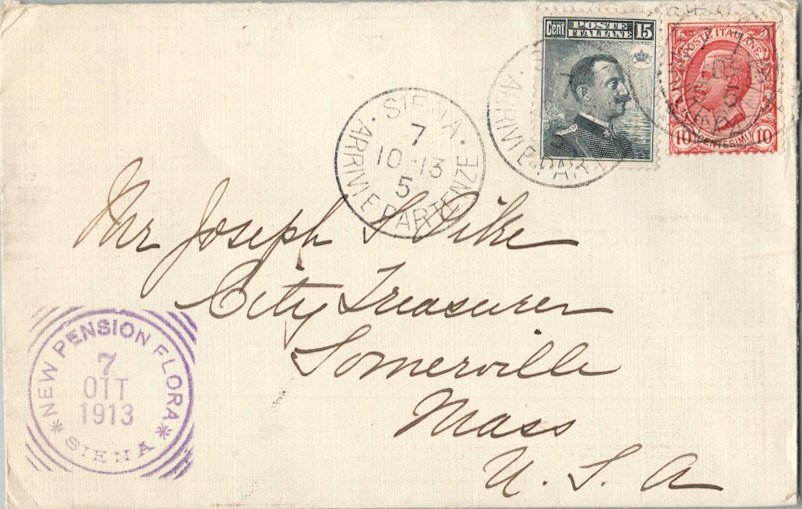 Cent POSTE ITALIANE 15
POSTE ITALIANE
10 CENTESIMI 10
SIENA
7
10-13
5
ARRIVI E PARTENZE
ARRIVI E PAR
Mr Joseph S Pike
City Treasurer
Somerville
Mass
U. S. A
NEW PENSION FLORA
7
OTT
1913
SIENA